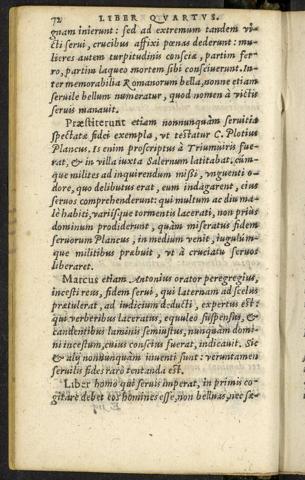 72 LIBER QVARTVS.
gnam inierunt: sed ad extremum tandem vi-
cti serui, crucibus affixi pœnas dederunt: mu-
lieres autem turpitudinis consciæ, partim fer-
ro, partim laqueo mortem sibi consciuerunt. In-
ter memorabilia Romanorum bella, nonne etiam
seruile bellum numeratur, quod nomen à victis
seruis manauit.
Præstiterunt etiam nonnunquàm seruitia
spectatæ fidei exempla, vt testatur C. Plotius
Plancus. Is enim proscriptus à Triumuiris fue-
rat, & in villa iuxta Salernum latitabat, cùm-
que milites ad inquirendum missi, vnguenti o-
dore, quo delibutus erat, eum indagarent, eius
seruos comprehenderunt: qui multum ac diu ma-
lè habiti, variisque tormentis lacerati, non prius
dominum prodiderunt, quàm miseratus fidem
seruorum Plancus, in medium venit, iugulùm-
que militibus præbuit, vt à cruciatu seruos
liberaret.
Marcus etiam Antonius orator peregregius,
incesti reus, fidem serui, qui laternam ad scelus
prætulerat, ad iudicium deducti, expertus est:
qui verberibus laceratus, equuleo suspensus, &
candentibus laminis semiustus, nunquàm domi-
ni incestum, cuius conscius fuerat, indicauit. Sic
& alij nonnunquàm inuenti sunt: veruntamen
seruilis fides rarò tentanda est.
Liber homo qui seruis imperat, in primis co-
gitare debet eos homines esse, non belluas, nec sæ-